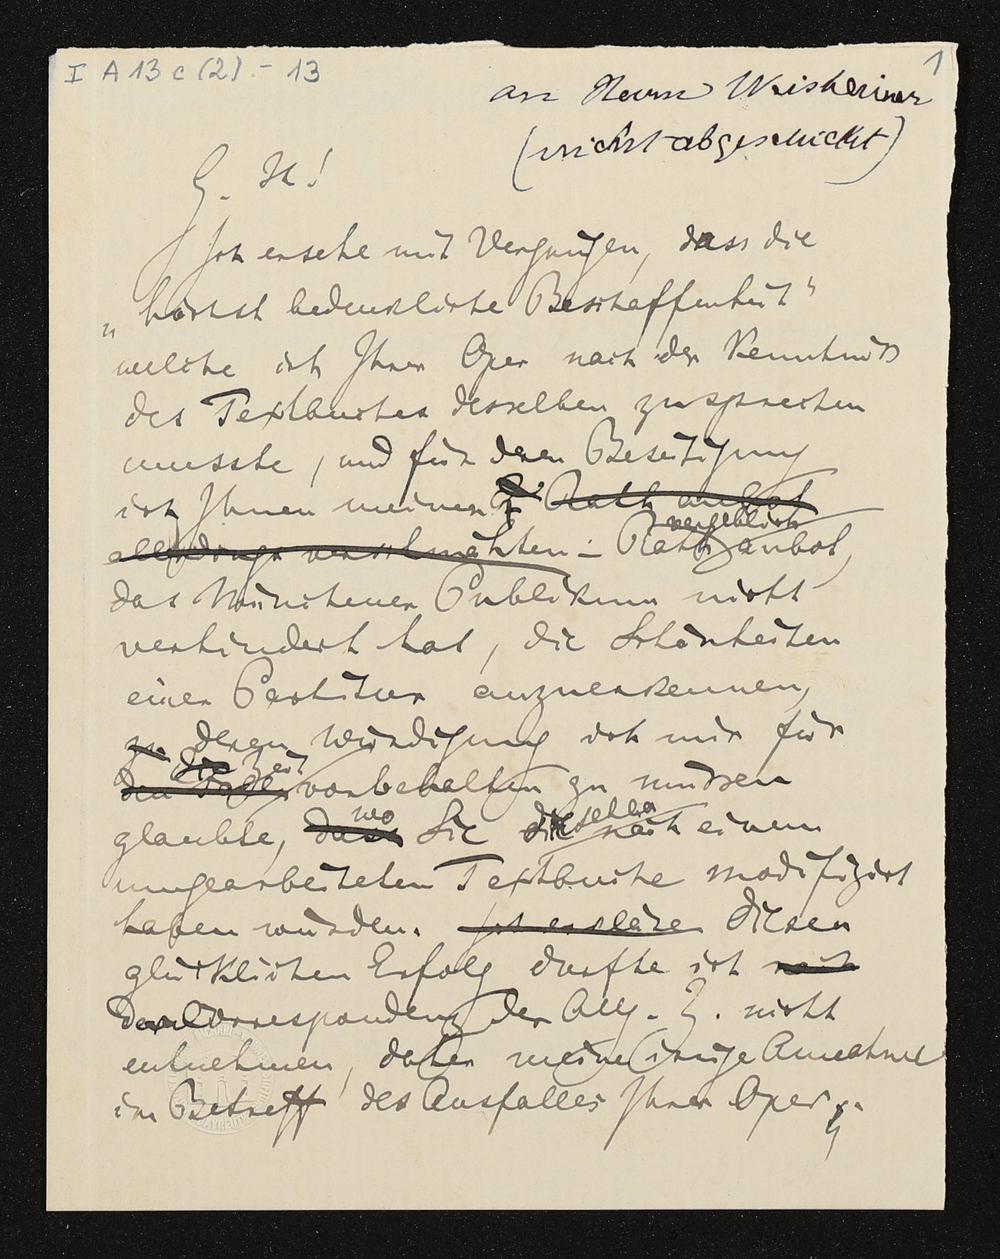 I A 13 c (2) .- 13
1
an Herrn Weisheimer
(nicht abgeschickt)
G. H!
Ich ersehe mit Vergnügen, dass die
„höchst bedenkliche Beschaffenheit"
welche ich Ihrer Oper nach der Kenntniss
des Textbuches desselben zusprechen
musste, und für deren Beseitigung
ich Ihnen meinen Rath anbot
vergeblich
allerdings verschmähten - Rath anbot,
das Münchener Publikum nicht
verhindert hat, die Schönheiten
einer Partitur anzuerkennen,
zu deren Würdigung ich mir für
die Zeit
den vorbehalten zu müssen
wo dieselbe
glaubte, dass Sie die nach einem
umgearbeiteten Textbuche modifizirt
haben würden. Ich erkläre Diesen
glücklichen Erfolg durfte ich nach
der Correspondenz der Allg. Z. nicht
entnehmen, daher meine irrige Annahme
im Betreff des Ausfalles Ihrer Oper